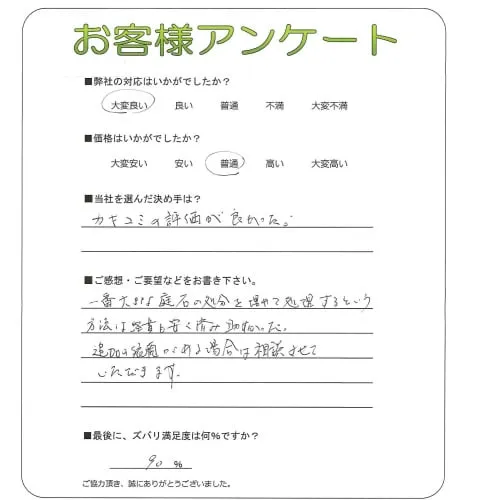 お客様アンケート
■弊社の対応はいかがでしたか？
大変良い 良い 普通 不満 大変不満
■価格はいかがでしたか？
大変安い 安い 普通 高い 大変高い
■当社を選んだ決め手は？
カキコミの評価が良かった。
■ご感想・ご要望などをお書き下さい。
一番大きな庭石の処分を埋めて処理するという
方法は経費も安く済み助かった。
追加の依頼がある場合は相談させて
いただきます。
■最後に、ズバリ満足度は何%ですか？
90 %
ご協力頂き、誠にありがとうございました。